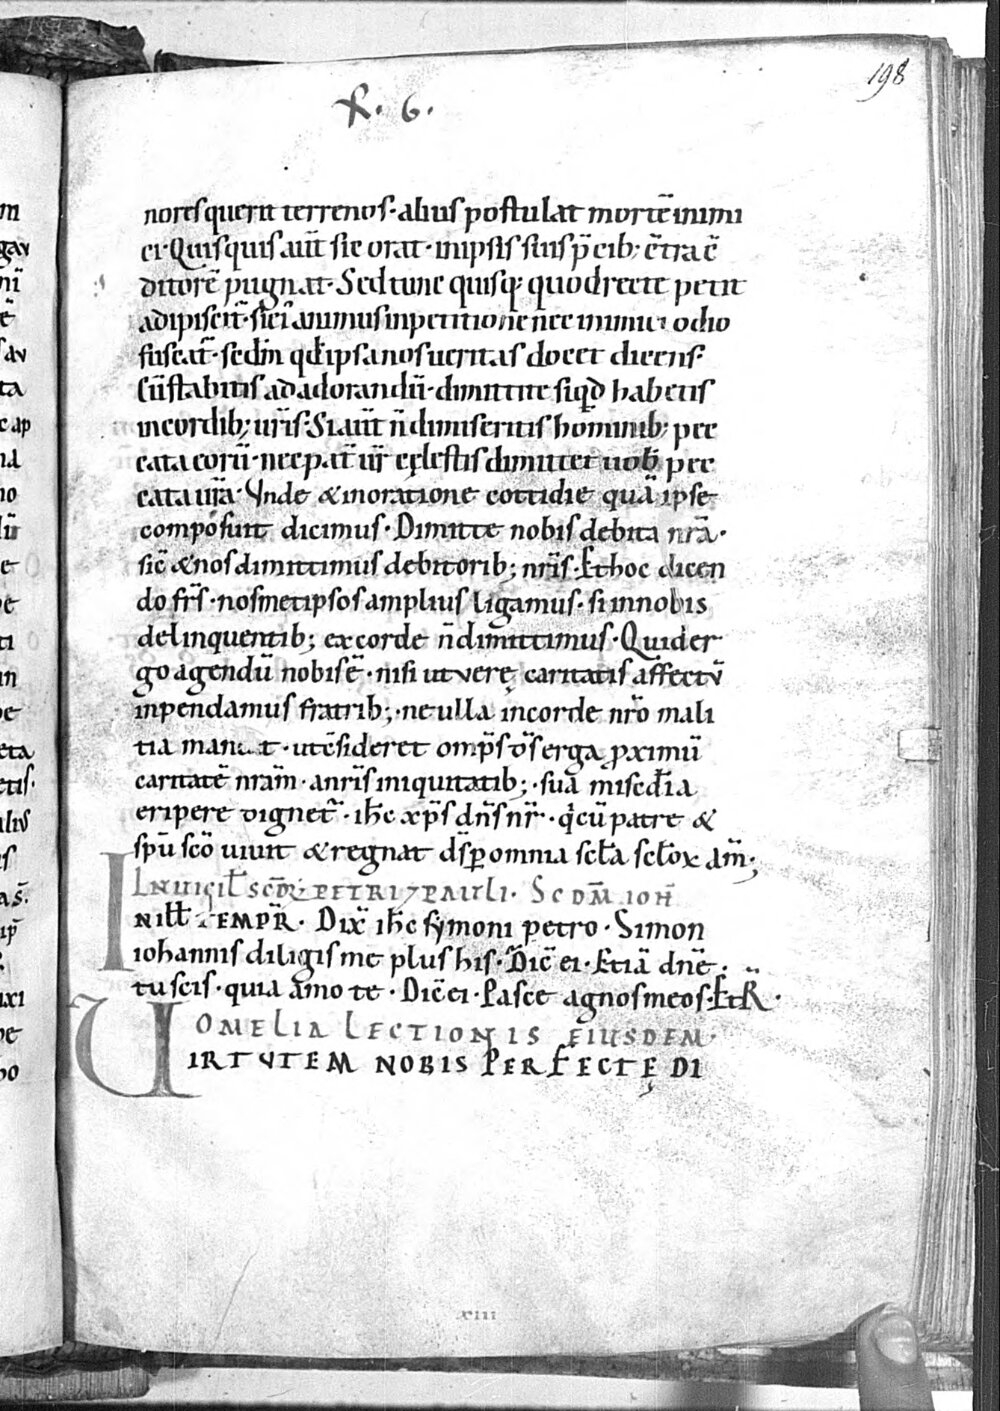 198
R. 6.
nores querit terrenos · alius postulat mortē inimi
ci · Quisquis aūt sic orat · in ipsis suis p̄cib; c̄tra c̄
ditorē pugnat · Sed tunc quisq; quod recte petit
adipiscit̄ · si ei animus in petitione nec inimici odio
fuscat̄ · sed in qd̄ ipsa nos ueritas docet dicens ·
Cū stabitis ad adorandū · dimittite siqd̄ habetis
in cordib; ur̄is · Si aūt n̄ dimiseritis hominib; pec
cata eorū · nec pat̄ ur̄ cęlestis dimittet uob̄ pec
cata ur̄a · Vnde & in oratione cottidie quā ipse
composuit dicimus · Dimitte nobis debita nr̄a ·
sic̄ & nos dimittimus debitorib; nr̄is · Et hoc dicen
do fr̄s · nosmetipsos amplius ligamus · si in nobis
delinquentib; ex corde n̄ dimittimus · Quid er
go agendū nobis ē · nisi ut verę caritatis affectū
inpendamus fratrib; · ne ulla in corde nr̄o mali
tia maneat · ut c̄sideret omp̄s d̄s erga proximū
caritatē nr̄am · a nr̄is iniquitatib; · sua misc̄dia
eripere dignet̄ · ihc̄ xp̄s dn̄s nr̄ · q̇ cū patre &
sp̄u sc̄o uiuit & regnat d̄s p̄ omnia sc̄la sc̄lox am̄;
In uigiī sc̄oꝝ petri & pauli · Scd̄m ioh̄
N ill̄ tempr̄ · Dix̄ ihc̄ symoni petro · Simon
iohannis diligis me plus his · Dic̄ ei · Etiā dn̄e ·
tu scis · quia amo te · Dic̄ ei · Pasce agnos meos · Et R̄ ·
Omelia lectionis eiusdem ·
Virtvtem nobis perfectę di
xiii